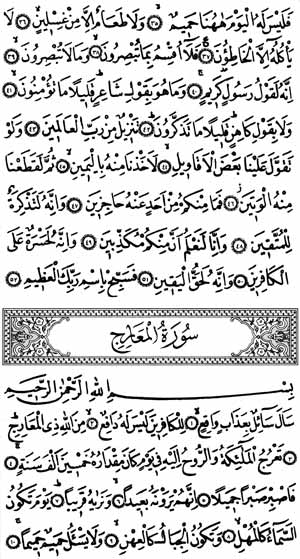 فَلَيْسَ لَهُ الْيَوْمَ هَٰهُنَا حَمِيمٌ ٣٥ وَلَا طَعَامٌ إِلَّا مِنْ غِسْلِينٍ ٣٦ لَا
يَأْكُلُهُ إِلَّا الْخَاطِئُونَ ٣٧ فَلَا أُقْسِمُ بِمَا تُبْصِرُونَ ٣٨ وَمَا لَا تُبْصِرُونَ ٣٩
إِنَّهُ لَقَوْلُ رَسُولٍ كَرِيمٍ ٤٠ وَمَا هُوَ بِقَوْلِ شَاعِرٍ قَلِيلًا مَا تُؤْمِنُونَ ٤١
وَلَا بِقَوْلِ كَاهِنٍ قَلِيلًا مَا تَذَكَّرُونَ ٤٢ تَنْزِيلٌ مِنْ رَبِّ الْعَالَمِينَ ٤٣ وَلَوْ
تَقَوَّلَ عَلَيْنَا بَعْضَ الْأَقَاوِيلِ ٤٤ لَأَخَذْنَا مِنْهُ بِالْيَمِينِ ٤٥ ثُمَّ لَقَطَعْنَا
مِنْهُ الْوَتِينَ ٤٦ فَمَا مِنْكُمْ مِنْ أَحَدٍ عَنْهُ حَاجِزِينَ ٤٧ وَإِنَّهُ لَتَذْكِرَةٌ
لِلْمُتَّقِينَ ٤٨ وَإِنَّا لَنَعْلَمُ أَنَّ مِنْكُمْ مُكَذِّبِينَ ٤٩ وَإِنَّهُ لَحَسْرَةٌ عَلَى
الْكَافِرِينَ ٥٠ وَإِنَّهُ لَحَقُّ الْيَقِينِ ٥١ فَسَبِّحْ بِاسْمِ رَبِّكَ الْعَظِيمِ ٥٢
سُورَةُ الْمَعَارِجِ
بِسْمِ اللهِ الرَّحْمٰنِ الرَّحِيمِ
سَأَلَ سَائِلٌ بِعَذَابٍ وَاقِعٍ ١ لِلْكَافِرِينَ لَيْسَ لَهُ دَافِعٌ ٢ مِنَ اللهِ ذِي الْمَعَارِجِ ٣
تَعْرُجُ الْمَلٰئِكَةُ وَالرُّوحُ إِلَيْهِ فِي يَوْمٍ كَانَ مِقْدَارُهُ خَمْسِينَ أَلْفَ سَنَةٍ ٤
فَاصْبِرْ صَبْرًا جَمِيلًا ٥ إِنَّهُمْ يَرَوْنَهُ بَعِيدًا ٦ وَنَرٰيهُ قَرِيبًا ٧ يَوْمَ تَكُونُ
السَّمَاءُ كَالْمُهْلِ ٨ وَتَكُونُ الْجِبَالُ كَالْعِهْنِ ٩ وَلَا يَسْأَلُ حَمِيمٌ حَمِيمًا ١٠